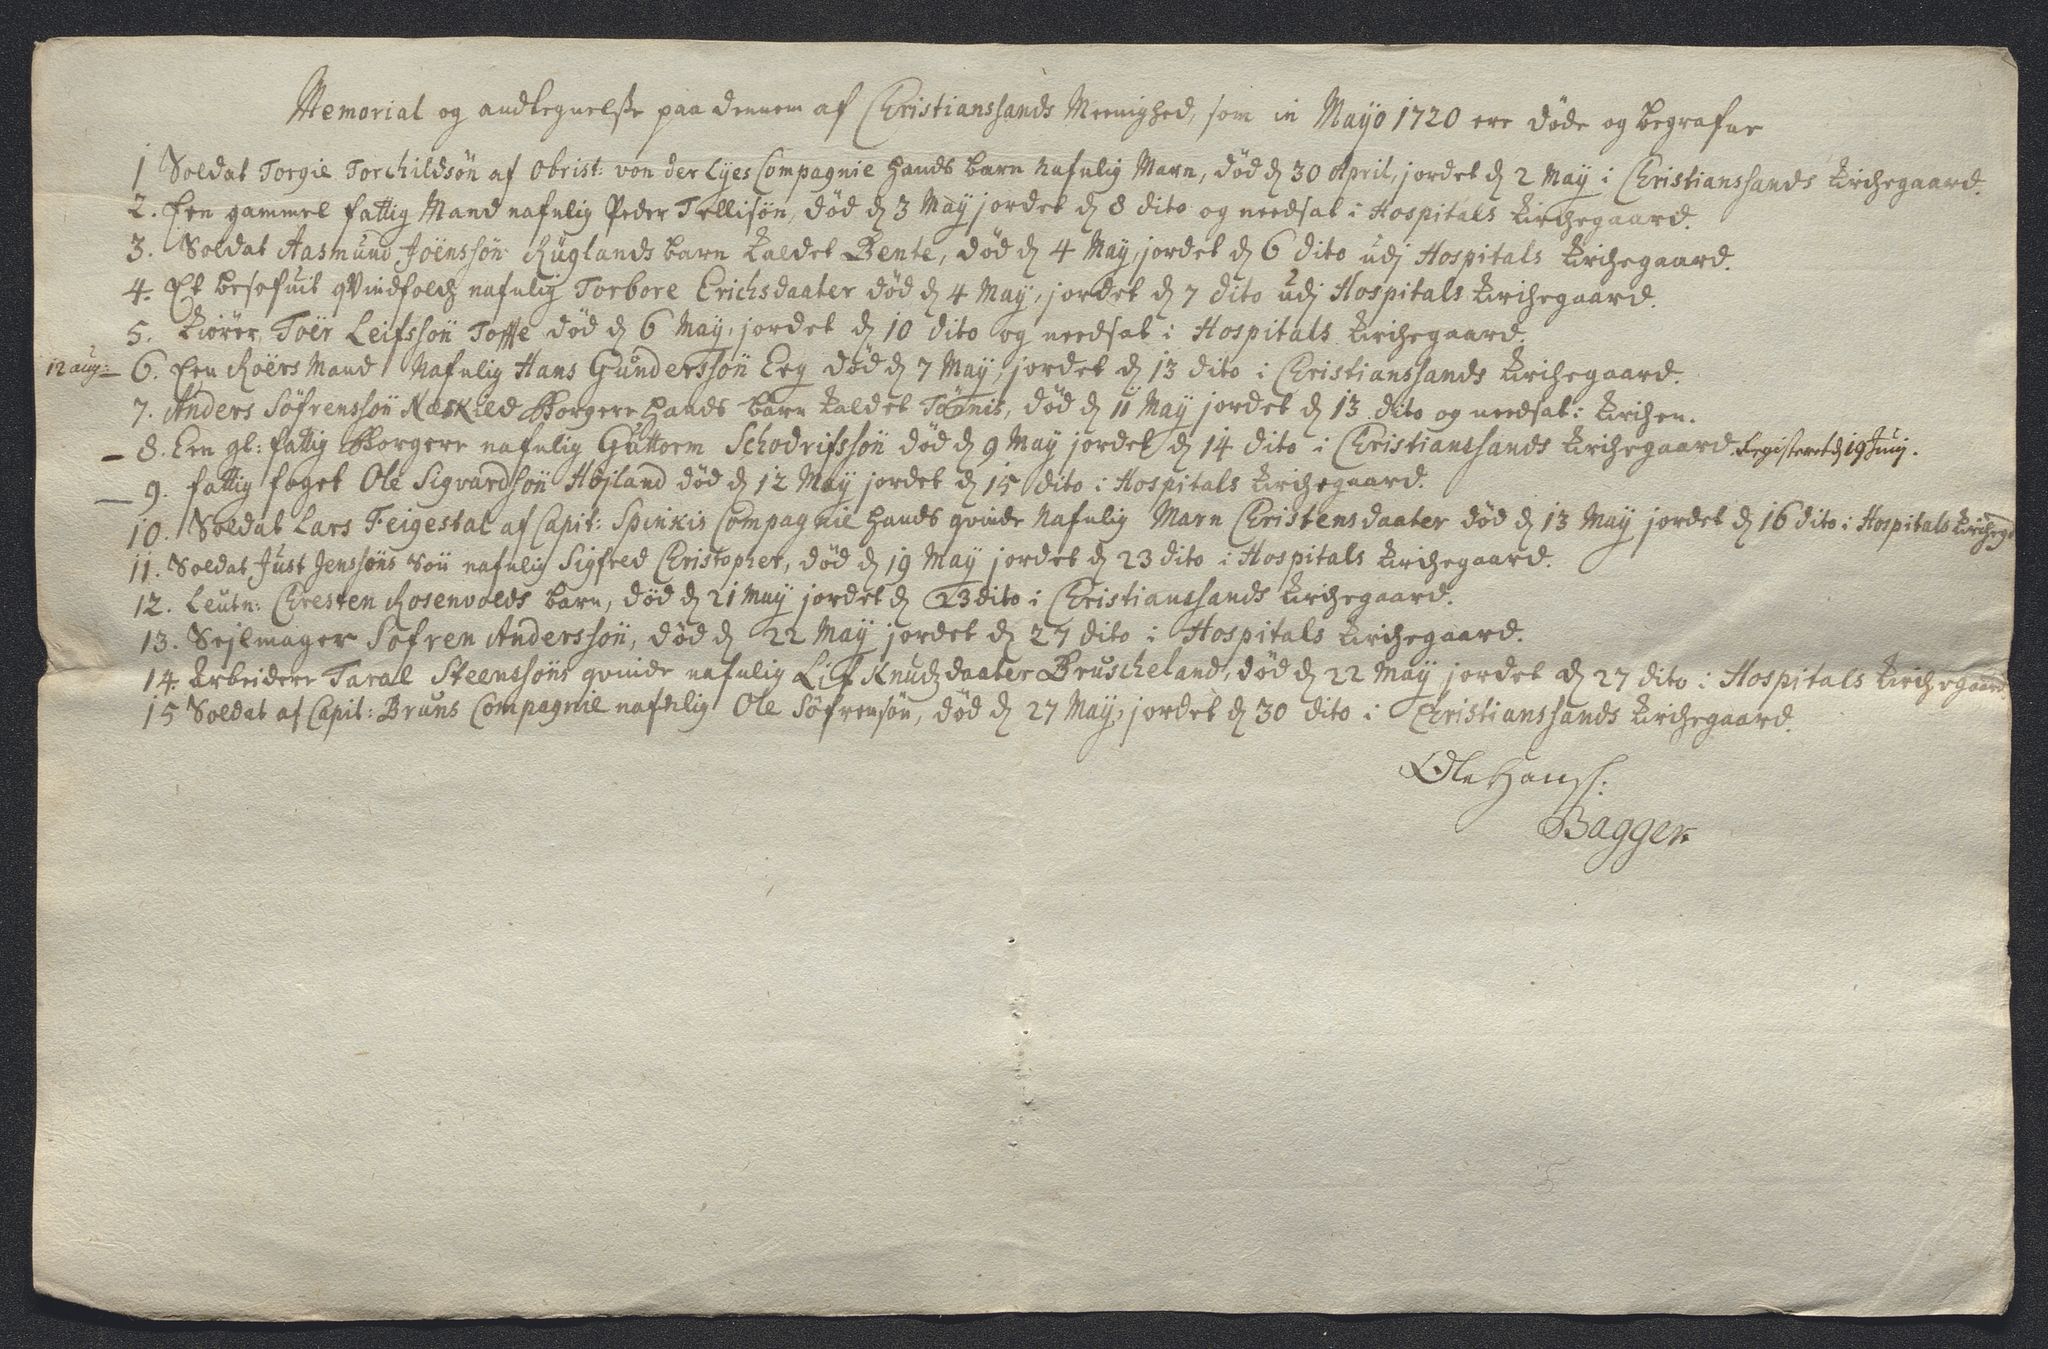 Memorial og andtegnelse paa dennem af Christianssands Meenighed, som in Mayo 1720 ere døde og begrafne
1 Soldat Torgie Torchildsøn af Obrist: von der Lyes Compagnie hands barn nafnlig Marn, død d 30 April, jordet d 2 May i Christianssands Kirchegaard.
2. Een gammel fattig Mand nafnlig Peder Tellisøn, død d 3 May jordet d 8 dito og needsat i Hospitals Kirchegaard.
3. Soldat Aasmund Joensøn Ruglands barn kaldet Bente, død d 4 May, jordet d 6 dito udj Hospitals Kirchegaard.
4. Et besofuit qvindfolch nafnlig Torbore Erichsdaater død d 4 May, jordet d 7 dito udj Hospitals Kirchegaard.
5. Kiører, Toër Leifssøn Toffte død d 6 May, jordet d 10 dito og needsat i Hospitals Kirchegaard.
12 aug: 6. Een Roërs Mand Nafnlig Hans Gunderssøn Eeg død d 7 May, jordet d 13 dito i Christianssands Kirchegaard.
7. Anders Søfrenssøn Næskild Borgere hands barn kaldet Tönnis, død d 11 May jordet d 13 dito og needsat i Kirchen.
8. Een gl: fattig Borgere nafnlig Guttorm Schodrifssøn død d 9 May jordet d 14 dito i Christianssands Kirchegaard. Registeret d 19 Junj.
9. fattig foget Ole Sigvardsøn Højland død d 12 May jordet d 15 dito i Hospitals Kirchegaard.
10. Soldat Lars Feigestal af Capit: Spinkis Compagnie hands qvinde Nafnlig Marn Christensdaater død d 13 May jordet d 16 dito i Hospitals Kirchegd
11. Soldat Just Jenssøns Søn nafnlig Sigfred Christopher, død d 19 May jordet d 23 dito i Hospitals Kirchegaard.
12. Leutn: Chresten Rosenvolds barn, død d 21 May jordet d 23 dito i Christianssands Kirchegaard.
13. Sejlmager Søfren Anderssøn, død d 22 May jordet d 27 dito i Hospitals Kirchegaard.
14. Arbeidere Taral Steenssøns qvinde nafnlig Lif Knudzdaater Bruscheland, død d 22 May jordet d 27 dito i Hospitals Kirchegaard.
15 Soldat af Capit: Bruns Compagnie nafnlig Ole Søfrensøn, død d 27 May, jordet d 30 dito i Christianssands Kirchegaard.
Ole Hans:
Bagger.